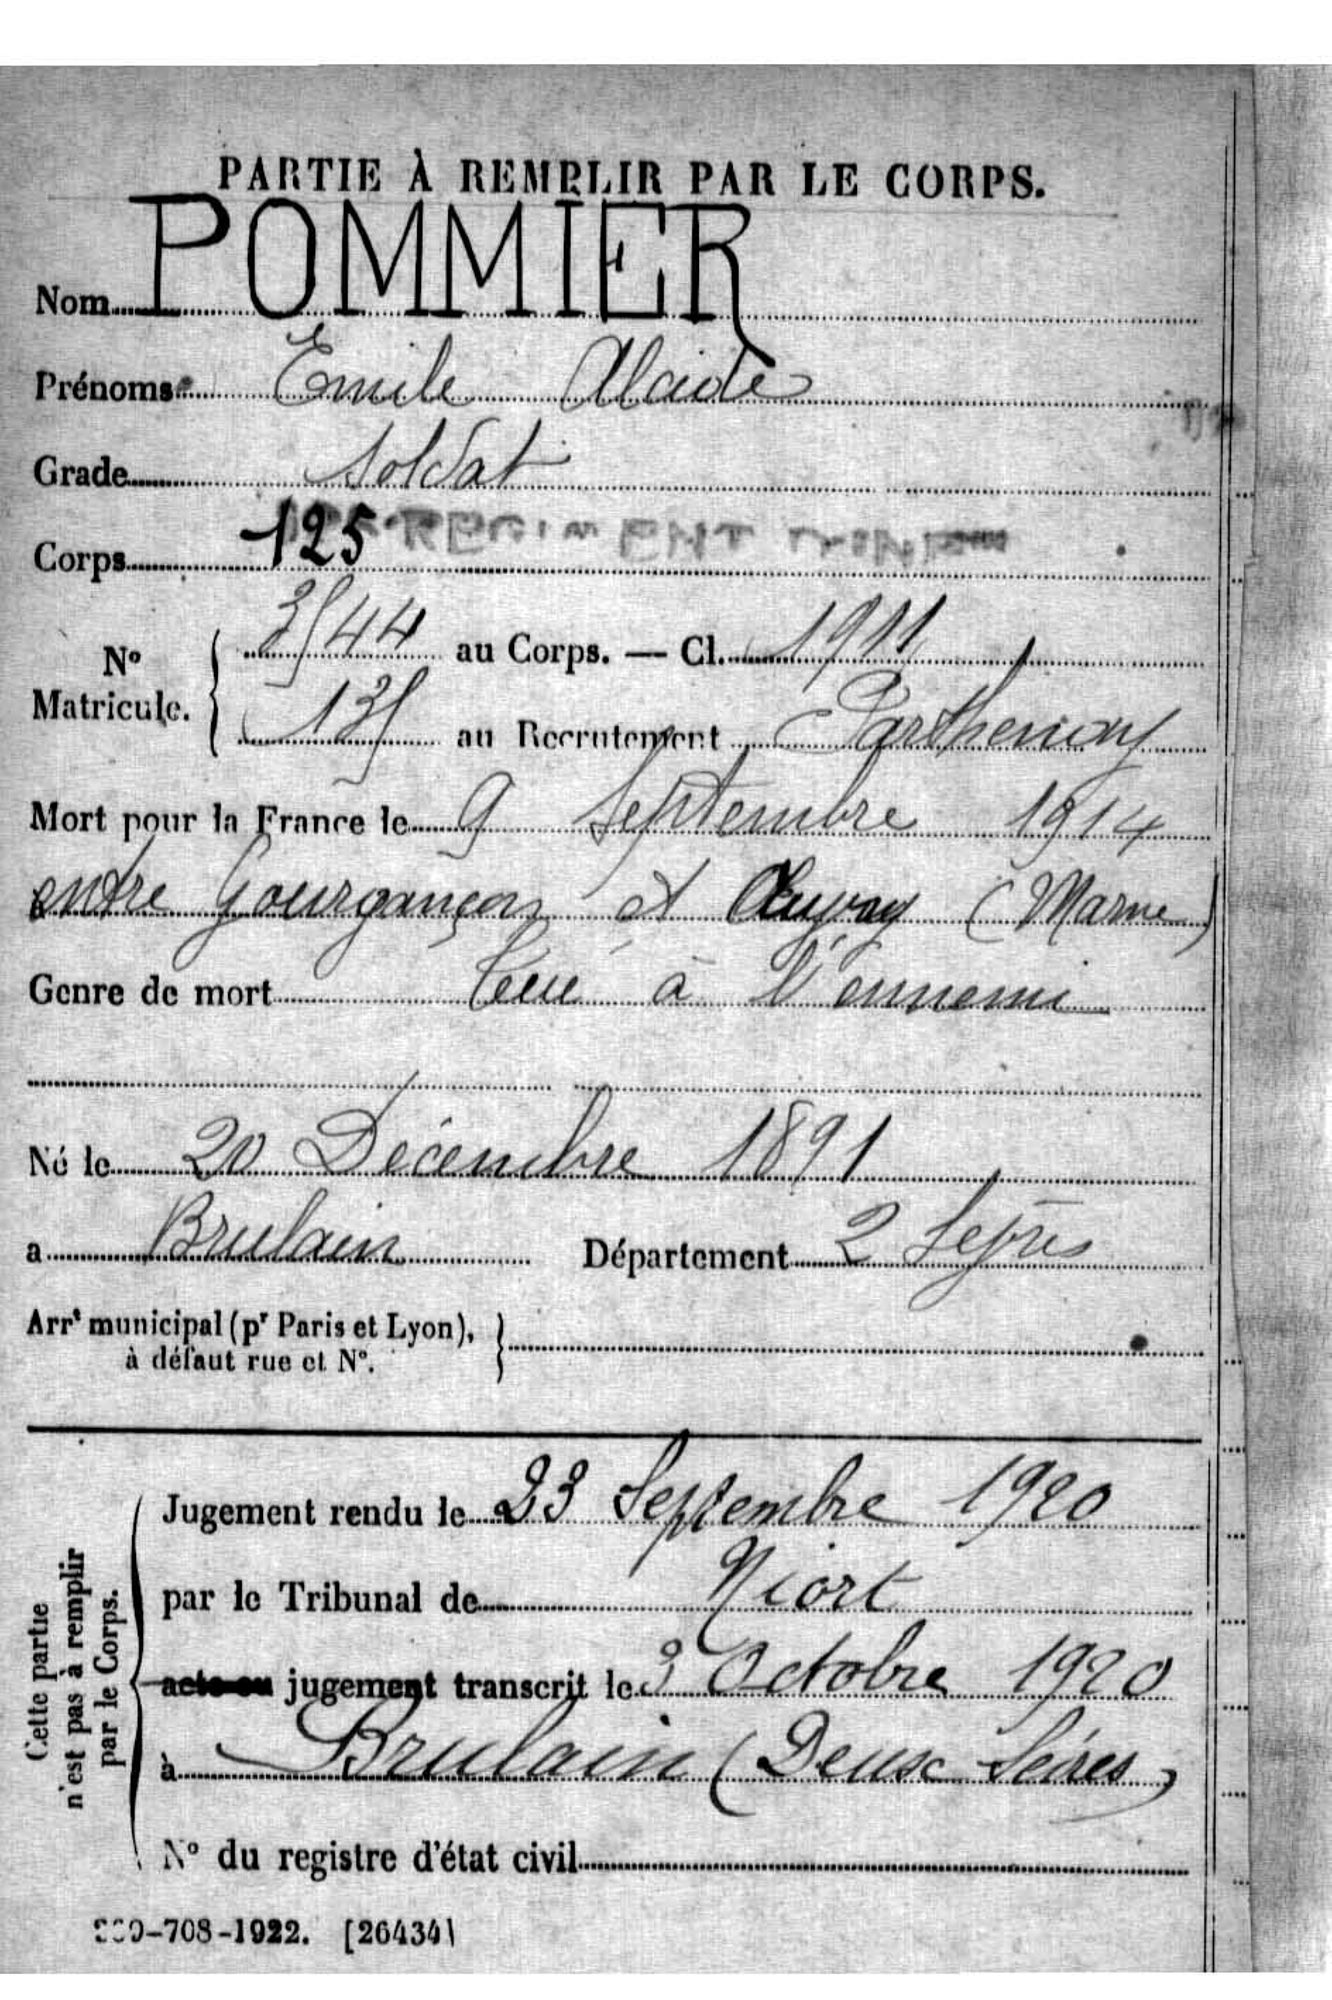 PARTIE À REMPLIR PAR LE CORPS.
Nom POMMIER
Prénoms Emile Alcide
Grade Soldat
Corps 125 REGIMENT D'INF
N° Matricule. { 3544 au Corps. — Cl. 1911
135 au Recrutement Parthenay
Mort pour la France le 9 Septembre 1914
entre Gourgançon et Œuvy (Marne)
Genre de mort Tué à l'ennemi
Né le 20 Décembre 1891
a Brulain Département 2 Sèvres
Arrt municipal (pr Paris et Lyon), }
à défaut rue et N°.
Cette partie
n'est pas à remplir
par le Corps.
Jugement rendu le 23 Septembre 1920
par le Tribunal de Niort
acte ou jugement transcrit le 3 Octobre 1920
à Brulain (Deux Sèvres)
N° du registre d'état civil
-708-1922. [26434]